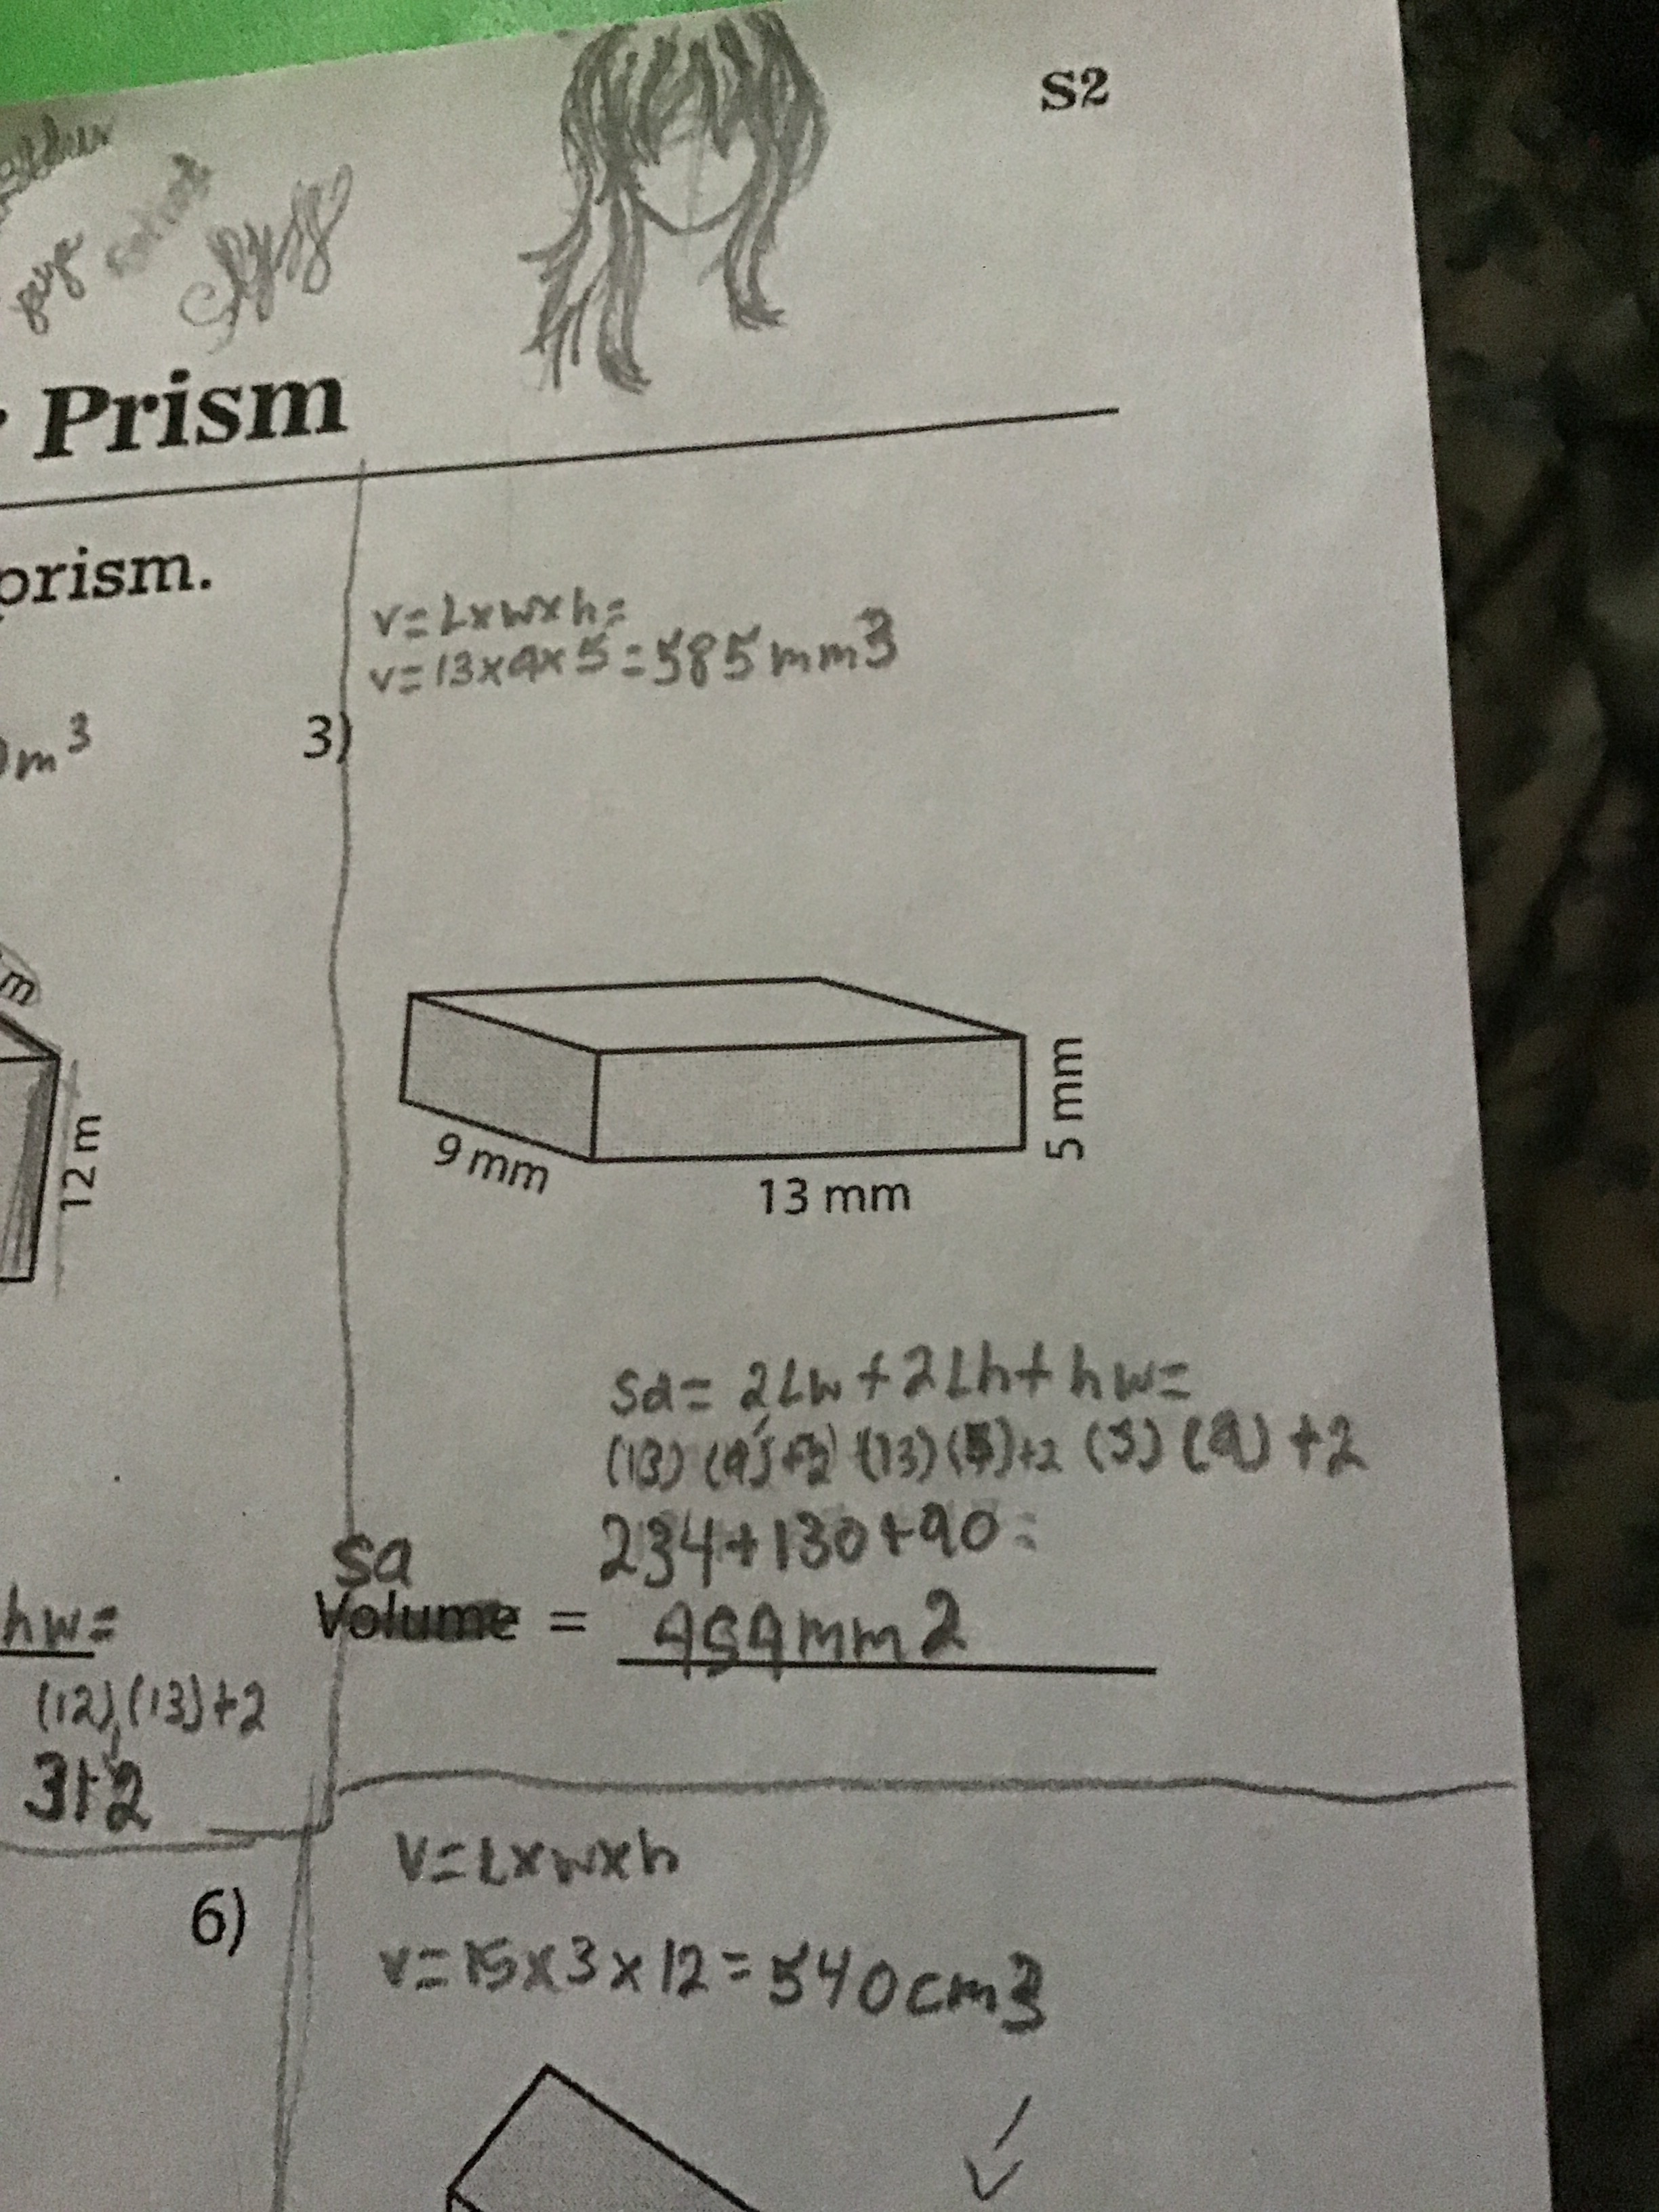 S2
Prism
prism.
v=L×w×h=
v=13×9×5=585mm3
m³
3)
m
12 m
9 mm
13 mm
5 mm
Sa= 2Lw+2Lh+hw=
(13) (9)+2 (13)(5)+2 (5)(9)+2
234+130+90=
sa
Volume = 454mm2
hw=
(12)(13)+2
312
6)
V=L×w×h
v=15×3×12=540cm3